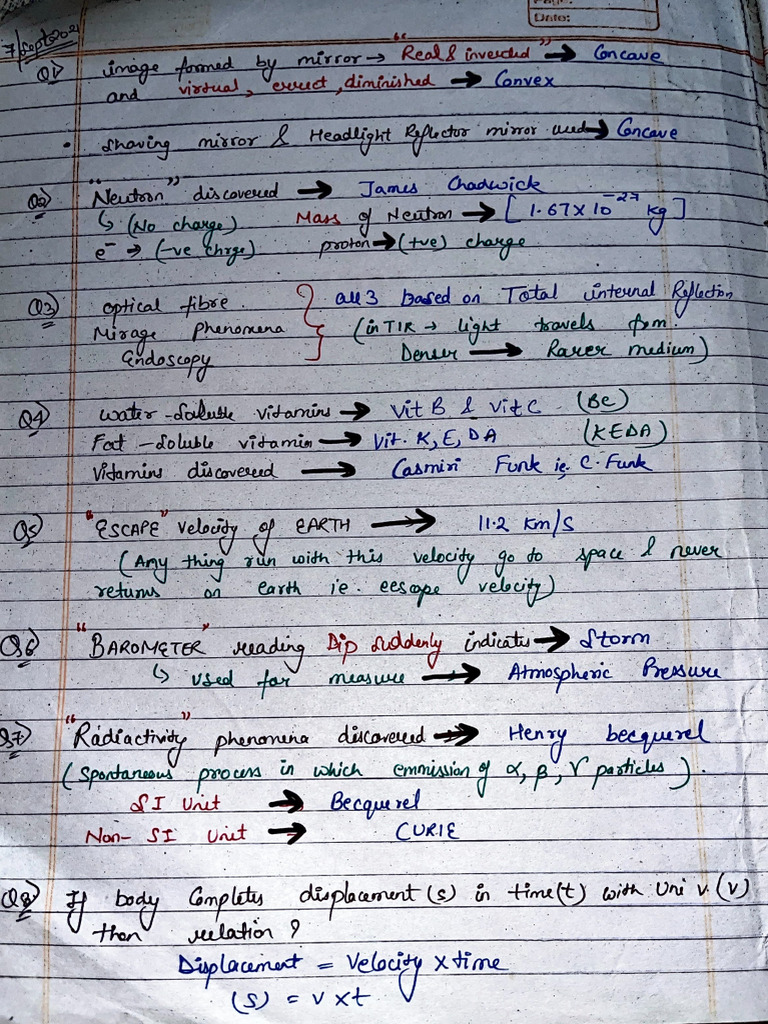 Date:
7/Sept/202
Q1) image formed by mirror → "Real & inverted" → Concave
and virtual, errect, diminished → Convex
• Shaving mirror & Headlight Reflector mirror used → Concave
Q2) "Neutron" discovered → James Chadwick
↳ (No charge) Mass of Neutron → [1.67 x 10⁻²⁷ kg]
e⁻ → (-ve chrge) proton → (+ve) charge
Q3) optical fibre. } all 3 based on Total internal Reflection
Mirage phenomena (in TIR → light travels from.
Endoscopy Denser → Rarer medium)
Q4) water-soluble vitamins → Vit B & Vit C (BC)
Fat-soluble vitamin → Vit. K, E, D A (KEDA)
Vitamins discovered → Casmiri Funk ie. C. Funk
Q5) "ESCAPE" velocity of EARTH → 11.2 Km/S
(Any thing run with this velocity go to space & never
returns on earth ie. eescape velocity)
Q6) "BAROMETER" reading Dip suddenly indicates → Storm
↳ used for measure → Atmospheric Pressure
Q7) "Radiactivity" phenomena discovered → Henry becquerel
(Spontaneous process in which emmission of α, β, γ particles).
SI Unit → Becquerel
Non-SI Unit → CURIE
Q8) If body Completes displacement (s) in time(t) with Uni v. (v)
than relation ?
Displacement = Velocity x time
(s) = v x t